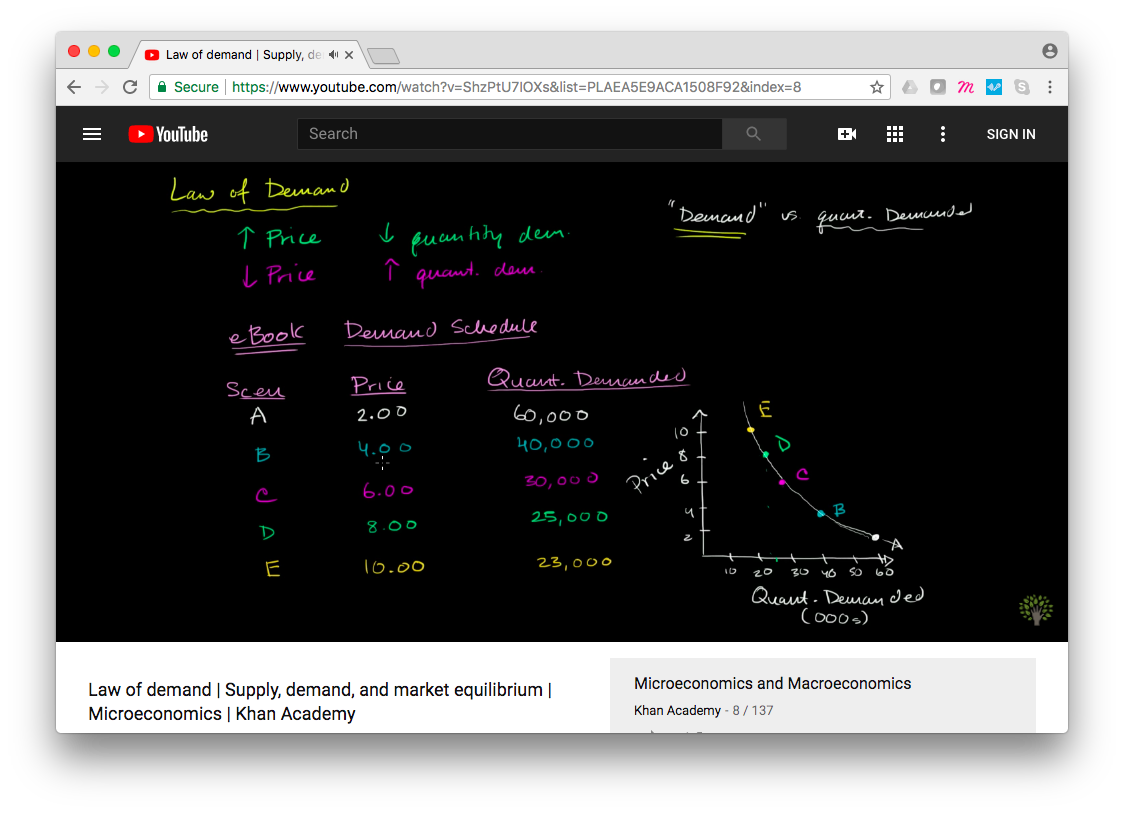 Law of demand | Supply, de
Secure https://www.youtube.com/watch?v=ShzPtU7IOXs&list=PLAEA5E9ACA1508F92&index=8
YouTube Search SIGN IN
Law of Demand
"Demand" vs. quant. Demanded
↑ Price ↓ quantity dem.
↓ Price ↑ quant. dem
eBook Demand Schedule
Scen Price Quant. Demanded
A 2.00 60,000
B 4.00 40,000
C 6.00 30,000
D 8.00 25,000
E 10.00 23,000
E
D
C
B
A
Price
10
8
6
4
2
10 20 30 40 50 60
Quant. Demanded
(000s)
Law of demand | Supply, demand, and market equilibrium |
Microeconomics | Khan Academy
Microeconomics and Macroeconomics
Khan Academy - 8 / 137